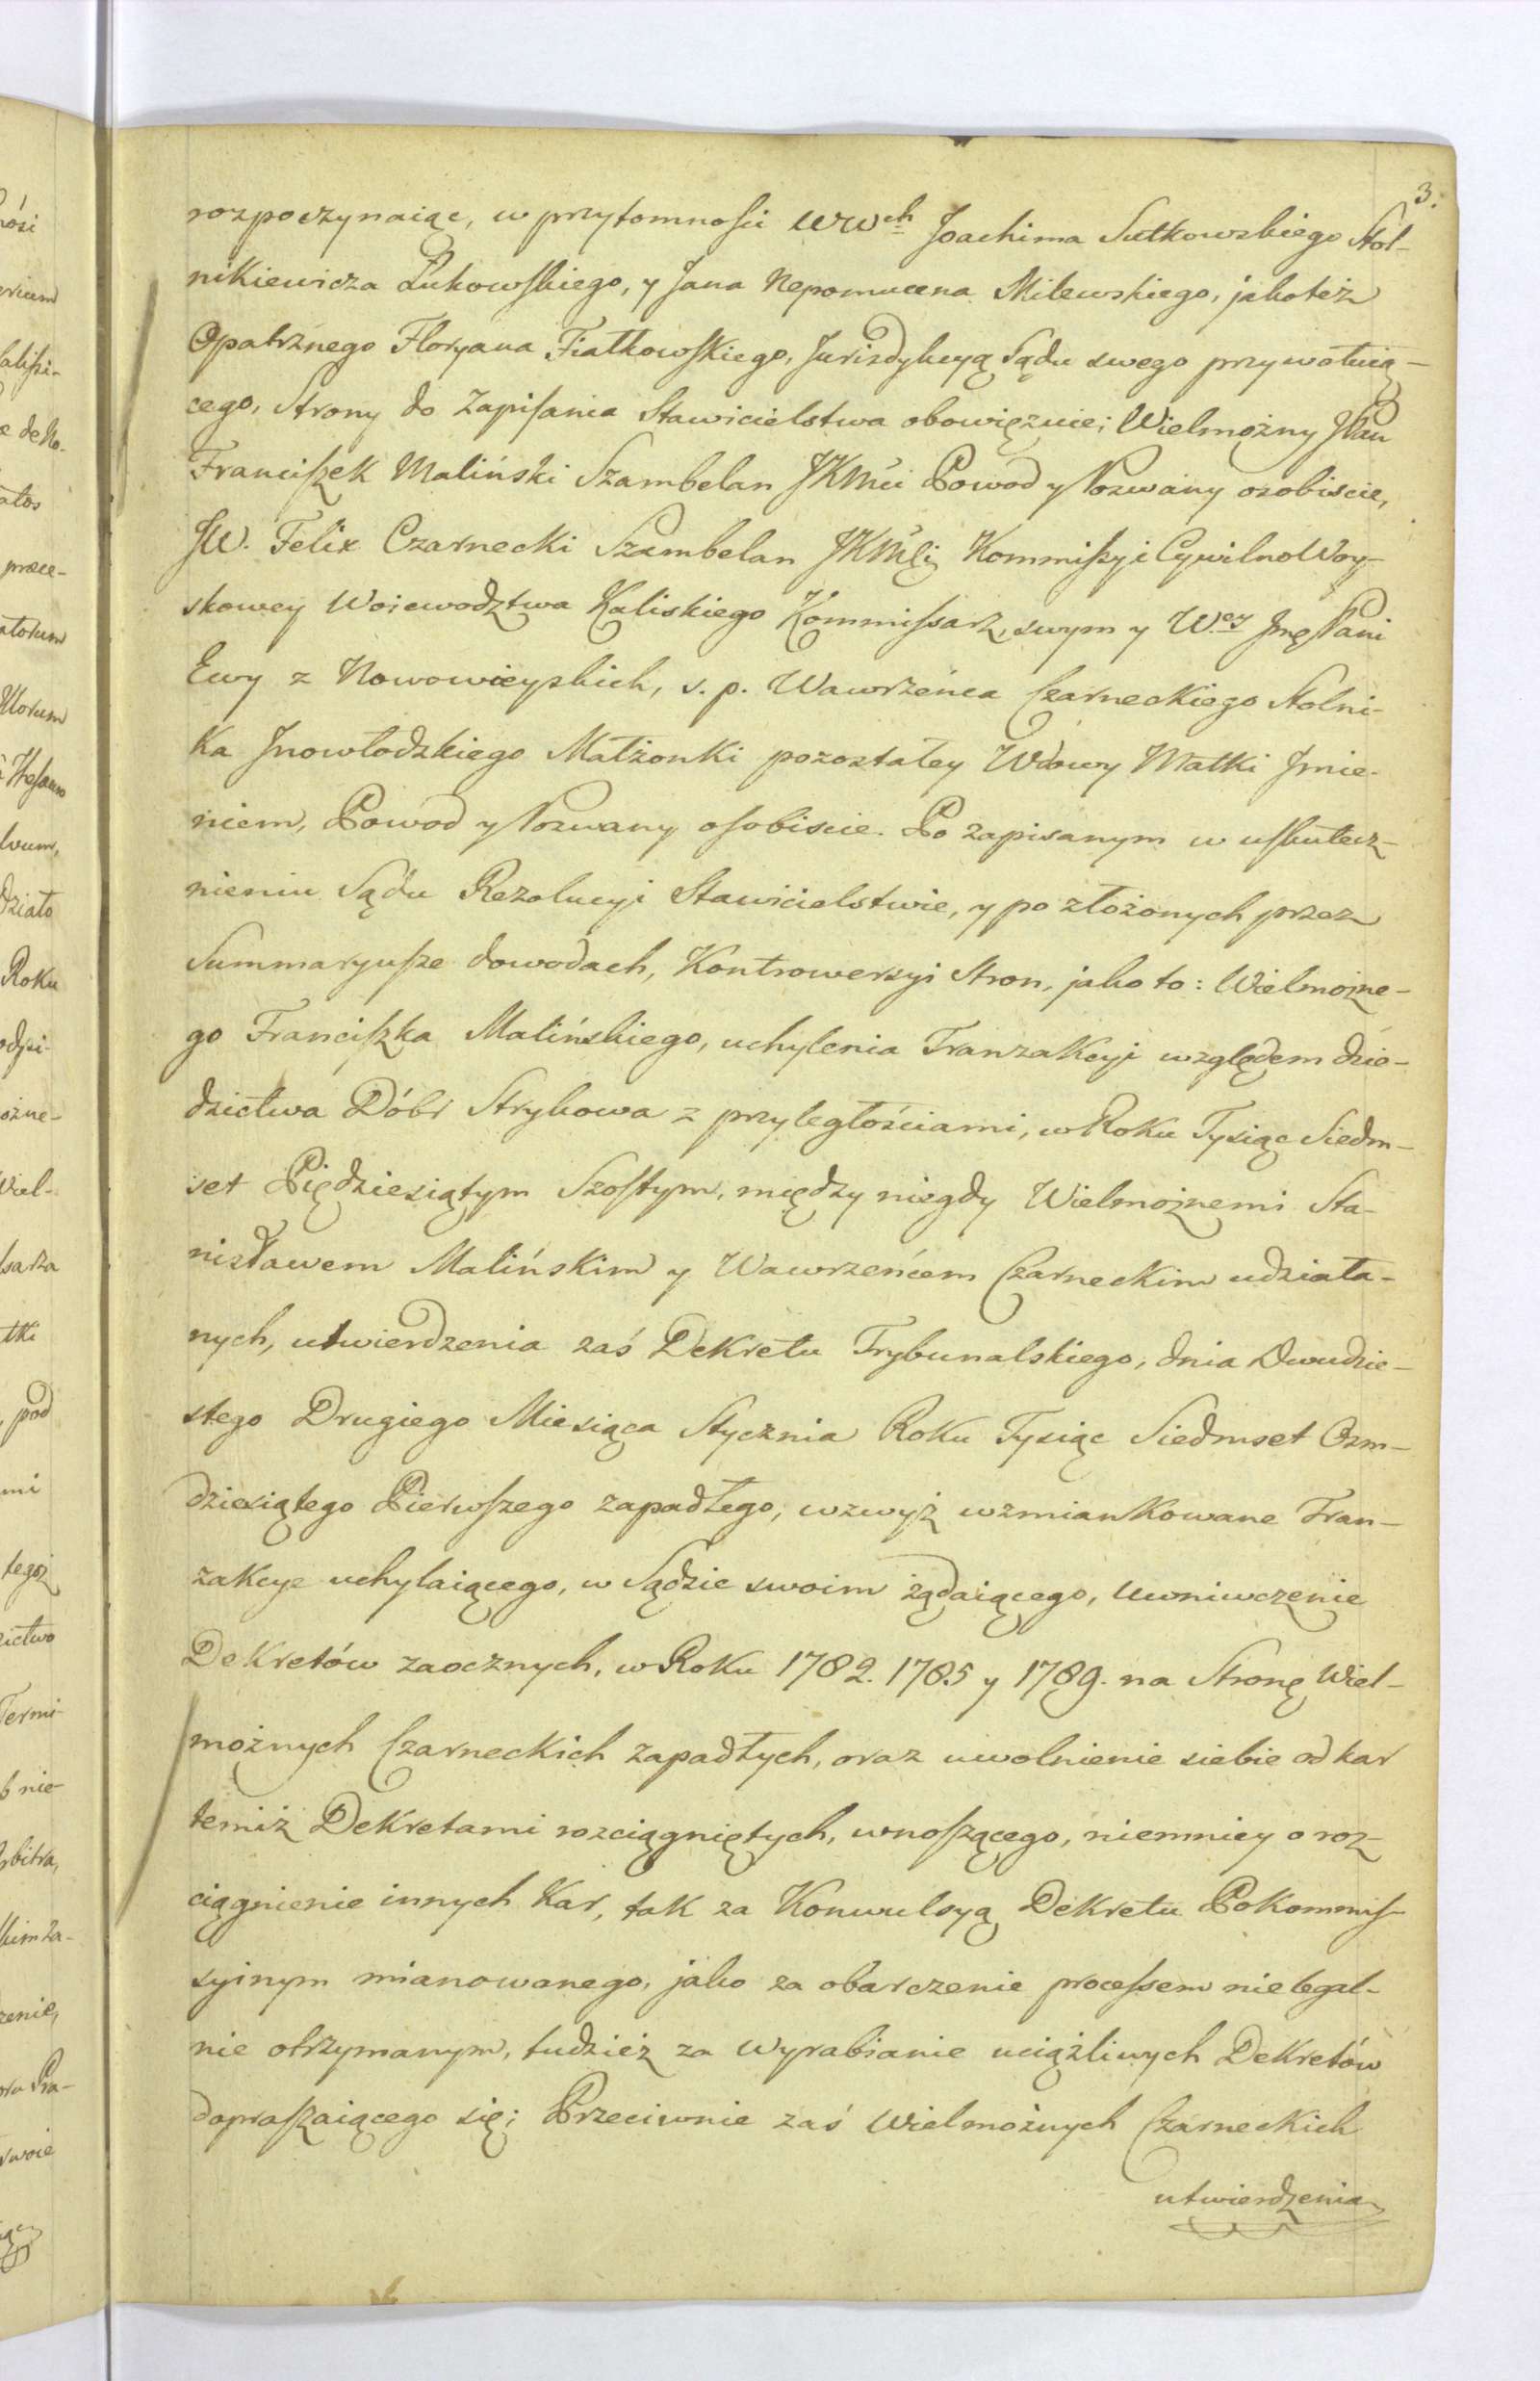 3.
rozpoczynaiąc, w przytomności WWch Joachima Sułkowskiego Stol-
nikiewicza Łukowskiego, y Jana Nepomucena Milewskiego, jakoteż
Opatrznego Floryana Fiałkowskiego, Jurisdykcyą Sądu swego przywołuią-
cego, Strony do Zapisania Stawicielstwa obowięzuie; Wielmożny JPan
Franciszek Maliński Szambelan JKMci Powod y Pozwany osobiscie,
JW. Felix Czarnecki Szambelan JKMCi Kommissyi CywilnoWoy-
skowey Woiewodztwa Kaliskiego Kommissarz, swym y W.ey Jmę Pani
Ewy z Nowowieyskich, s. p. Wawrzeńca Czarneckiego Stolni-
ka Jnowłodzkiego Małżonki pozostałey Wdowy Matki Jmie-
niem, Powod y Pozwany osobiscie. Po zapisanym w uskutecz-
nieniu Sądu Rezolucyi Stawicielstwie, y po złożonych przez
Summaryusze dowodach, Kontrowersyi Stron, jako to: Wielmożne-
go Franciszka Malińskiego, uchylenia Tranzakcyi względem dzie-
dzictwa Dóbr Strykowa z przyległościami, w Roku Tysiąc Siedm-
set Piędziesiątym Szostym, między niegdy Wielmożnemi Sta-
nisławem Malińskim y Wawrzeńcem Czarneckim udziała-
nych, utwierdzenia zaś Dekretu Trybunalskiego, dnia Dwudzie-
stego Drugiego Miesiąca Stycznia Roku Tysiąc Siedmset Osm-
dziesiątego Pierwszego zapadłego, wzwyż wzmiankowane Tran-
zakcye uchylaiącego, w Sądzie swoim żądaiącego, uwniwczenie
Dekretów zaocznych, w Roku 1782. 1785 y 1789. na Stronę Wiel-
możnych Czarneckich zapadłych, oraz uwolnienie siebie od kar
temiż Dekretami rozciągniętych, wnoszącego, niemniey o roz-
ciągnienie innych Kar, tak za Konwulsyą Dekretu PoKommis-
syinym mianowanego, jako za obarczenie processem nielegal-
nie otrzymanym, tudzież za wyrabianie uciążliwych Dekretów
dopraszaiącego się; Przeciwnie zaś Wielmożnych Czarneckich
utwierdzenia